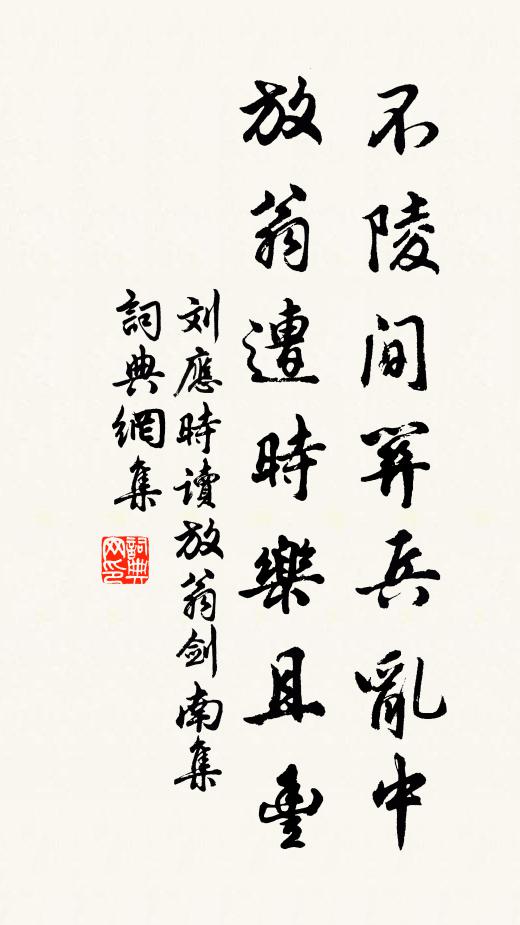 不陵間關兵亂中
放翁遭時樂且豐
刘應時讀放翁劍南集
詞典網集
詞典网印